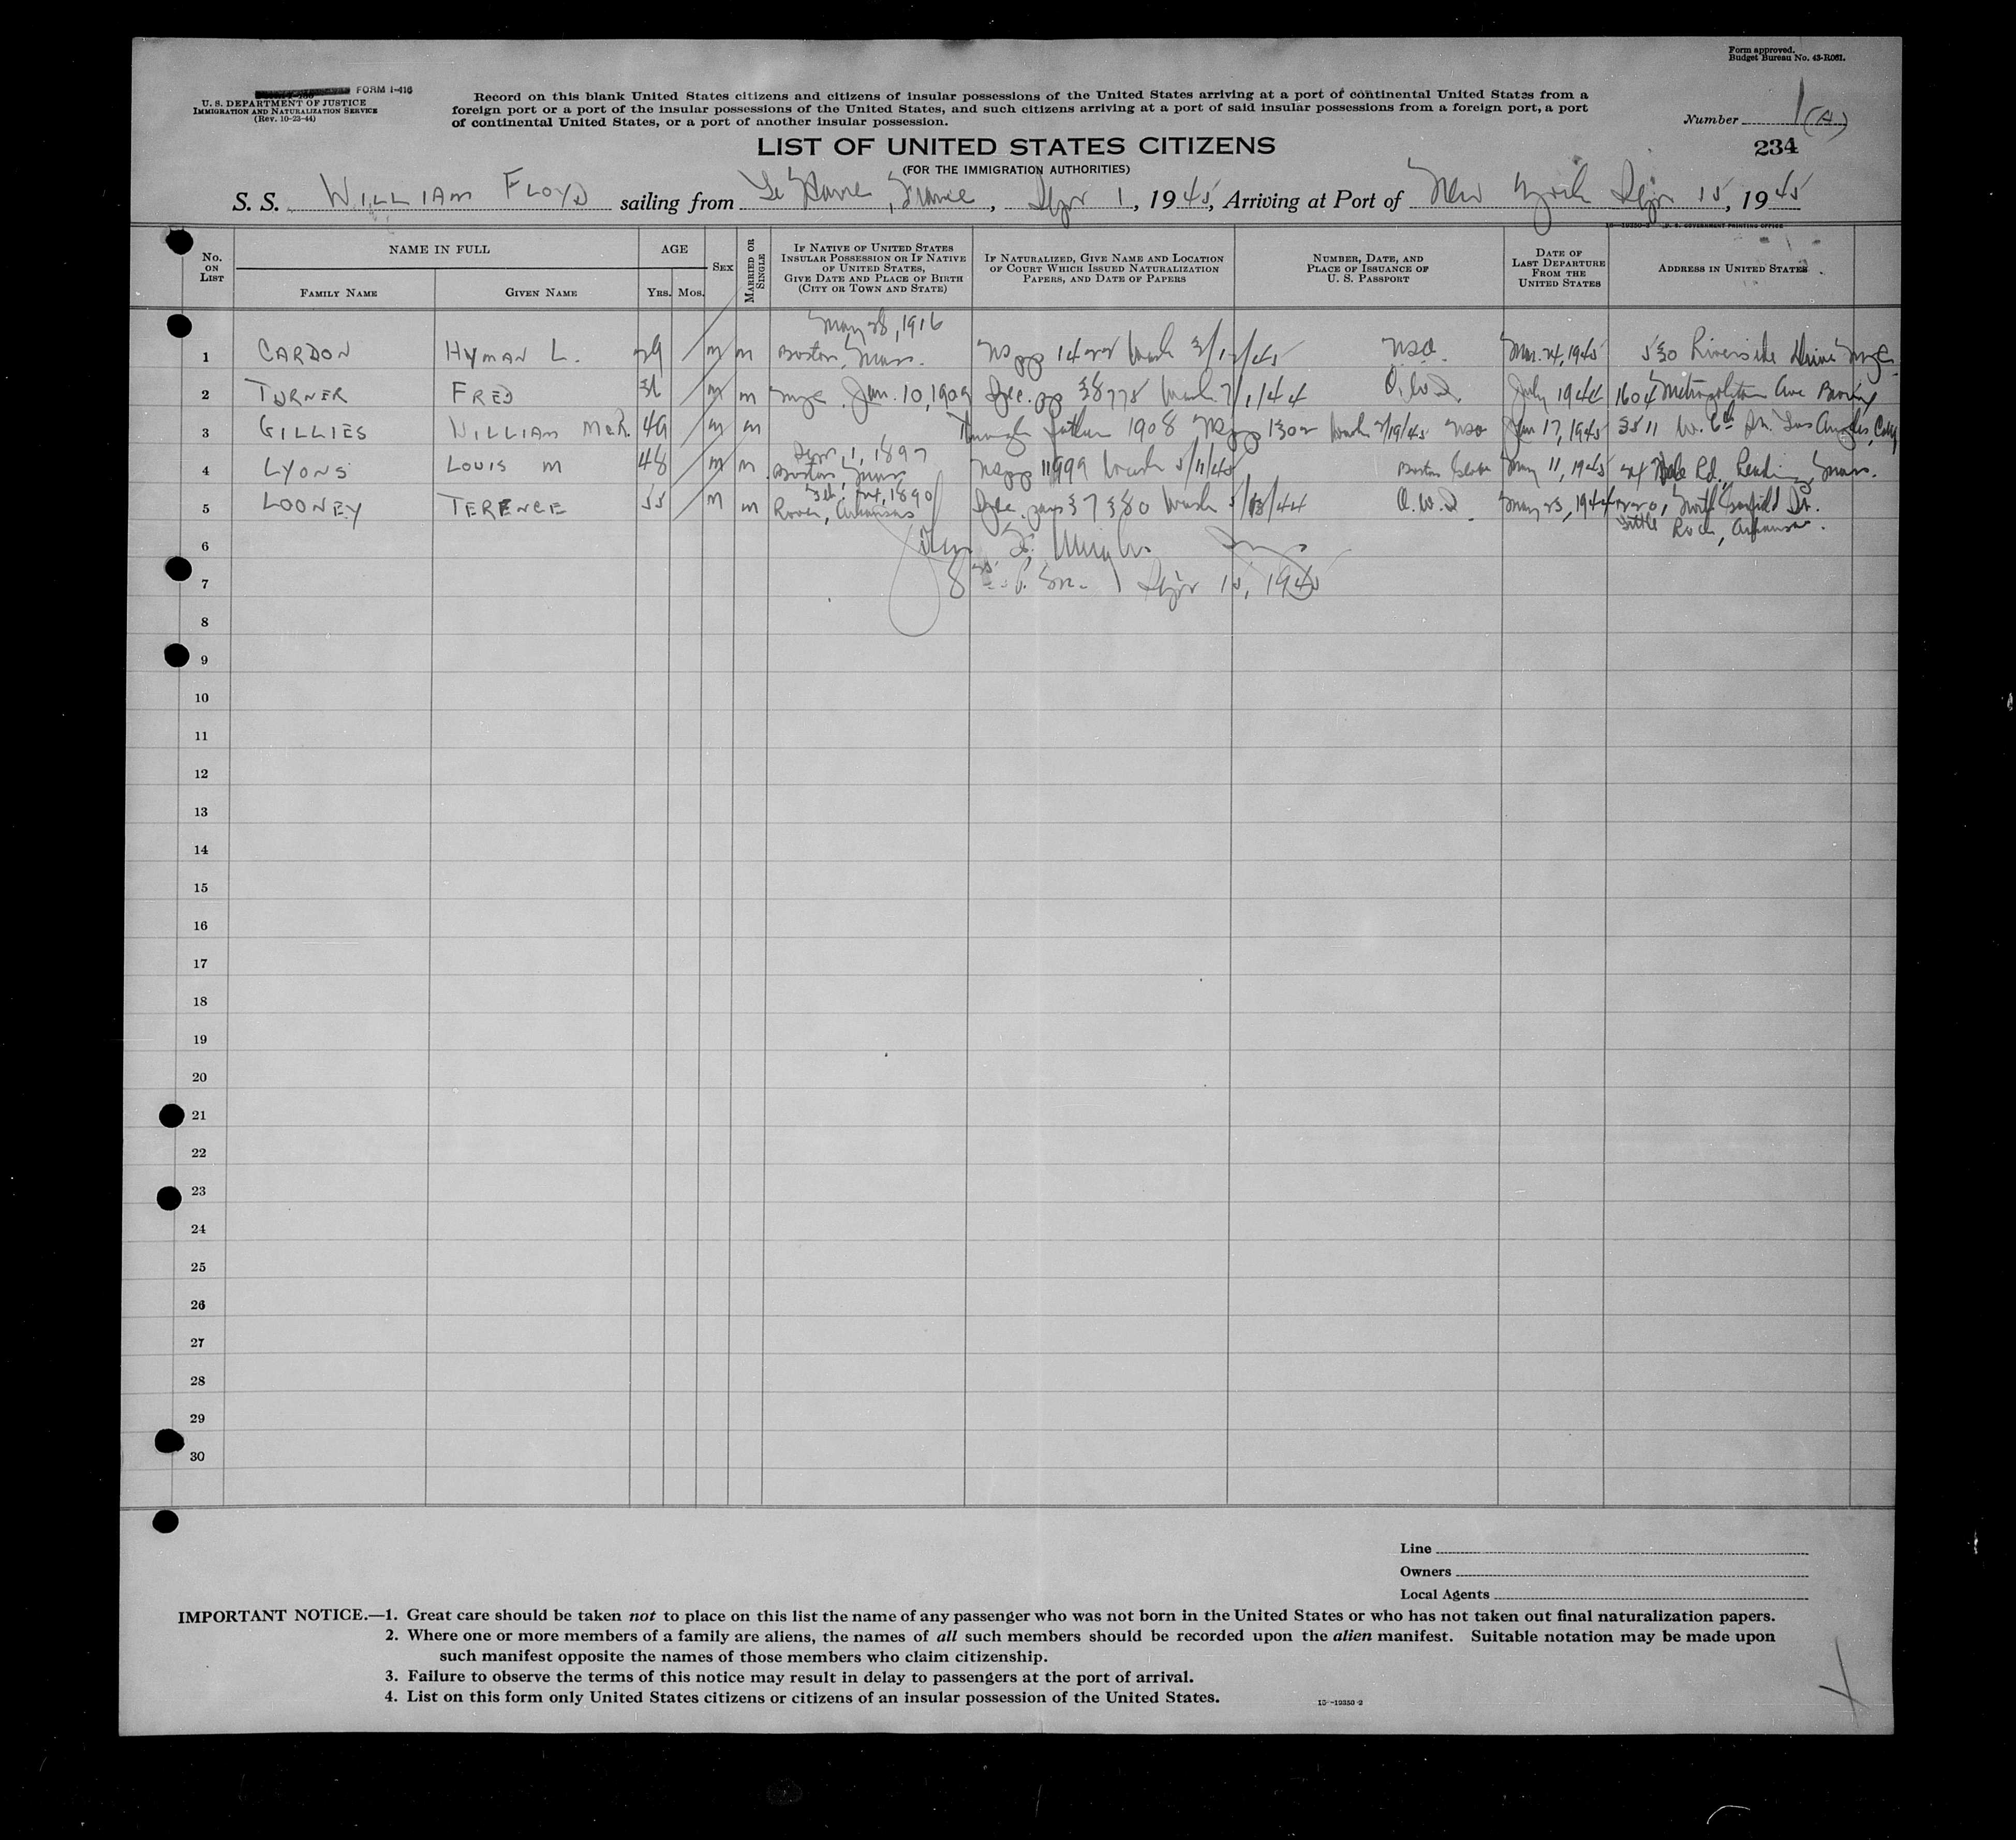 Form approved.
Budget Bureau No. 43-R061.
FORM I-416
U. S. DEPARTMENT OF JUSTICE
IMMIGRATION AND NATURALIZATION SERVICE
(Rev. 10-23-44)
Record on this blank United States citizens and citizens of insular possessions of the United States arriving at a port of continental United States from a
foreign port or a port of the insular possessions of the United States, and such citizens arriving at a port of said insular possessions from a foreign port, a port
of continental United States, or a port of another insular possession.
Number 1 (A)
234
LIST OF UNITED STATES CITIZENS
(FOR THE IMMIGRATION AUTHORITIES)
S. S. WILLIAM FLOYD sailing from Le Havre, France, Sept 1, 1945, Arriving at Port of New York Sept 15, 1945
16—19350-2 U. S. GOVERNMENT PRINTING OFFICE
No. ON LIST
NAME IN FULL
FAMILY NAME
GIVEN NAME
AGE
YRS. MOS.
SEX
MARRIED OR SINGLE
IF NATIVE OF UNITED STATES
INSULAR POSSESSION OR IF NATIVE
OF UNITED STATES,
GIVE DATE AND PLACE OF BIRTH
(CITY OR TOWN AND STATE)
IF NATURALIZED, GIVE NAME AND LOCATION
OF COURT WHICH ISSUED NATURALIZATION
PAPERS, AND DATE OF PAPERS
NUMBER, DATE, AND
PLACE OF ISSUANCE OF
U. S. PASSPORT
DATE OF
LAST DEPARTURE
FROM THE
UNITED STATES
ADDRESS IN UNITED STATES
May 28, 1916
1 CARDON HYMAN L. 29 m m Boston, Mass. pp 1422 Wash 45 Mar. 24, 1945 530 Riverside Drive NYC
2 TURNER FRED 36 m m NYC Jan. 10, 1909 Spec. pp 38778 Wash. 7/1/44 O.W.I. July 1944 1604 Metropolitan Ave
3 GILLIES WILLIAM McK. 49 m m Through father 1908 pp 1302 Wash 2/19/45 Jan 17, 1945 3511 W. 6th St. Los Angeles, Calif
Sept 1, 1897
4 LYONS LOUIS M 48 m m Boston, Mass pp 11999 Wash 5/11/45 Boston Globe May 11, 1945 24 Rd., Reading, Mass.
Feb. 24, 1890
5 LOONEY TERENCE 55 m m Arkansas Spec. pass 37380 Wash 5/13/44 O.W.I. May 23, 1944 North Garfield Dr.
Little Rock, Arkansas.
6
7 Sept 15, 1945
8
9
10
11
12
13
14
15
16
17
18
19
20
21
22
23
24
25
26
27
28
29
30
Line
Owners
Local Agents
IMPORTANT NOTICE.—1. Great care should be taken not to place on this list the name of any passenger who was not born in the United States or who has not taken out final naturalization papers.
2. Where one or more members of a family are aliens, the names of all such members should be recorded upon the alien manifest. Suitable notation may be made upon
such manifest opposite the names of those members who claim citizenship.
3. Failure to observe the terms of this notice may result in delay to passengers at the port of arrival.
4. List on this form only United States citizens or citizens of an insular possession of the United States.
16—19350-2